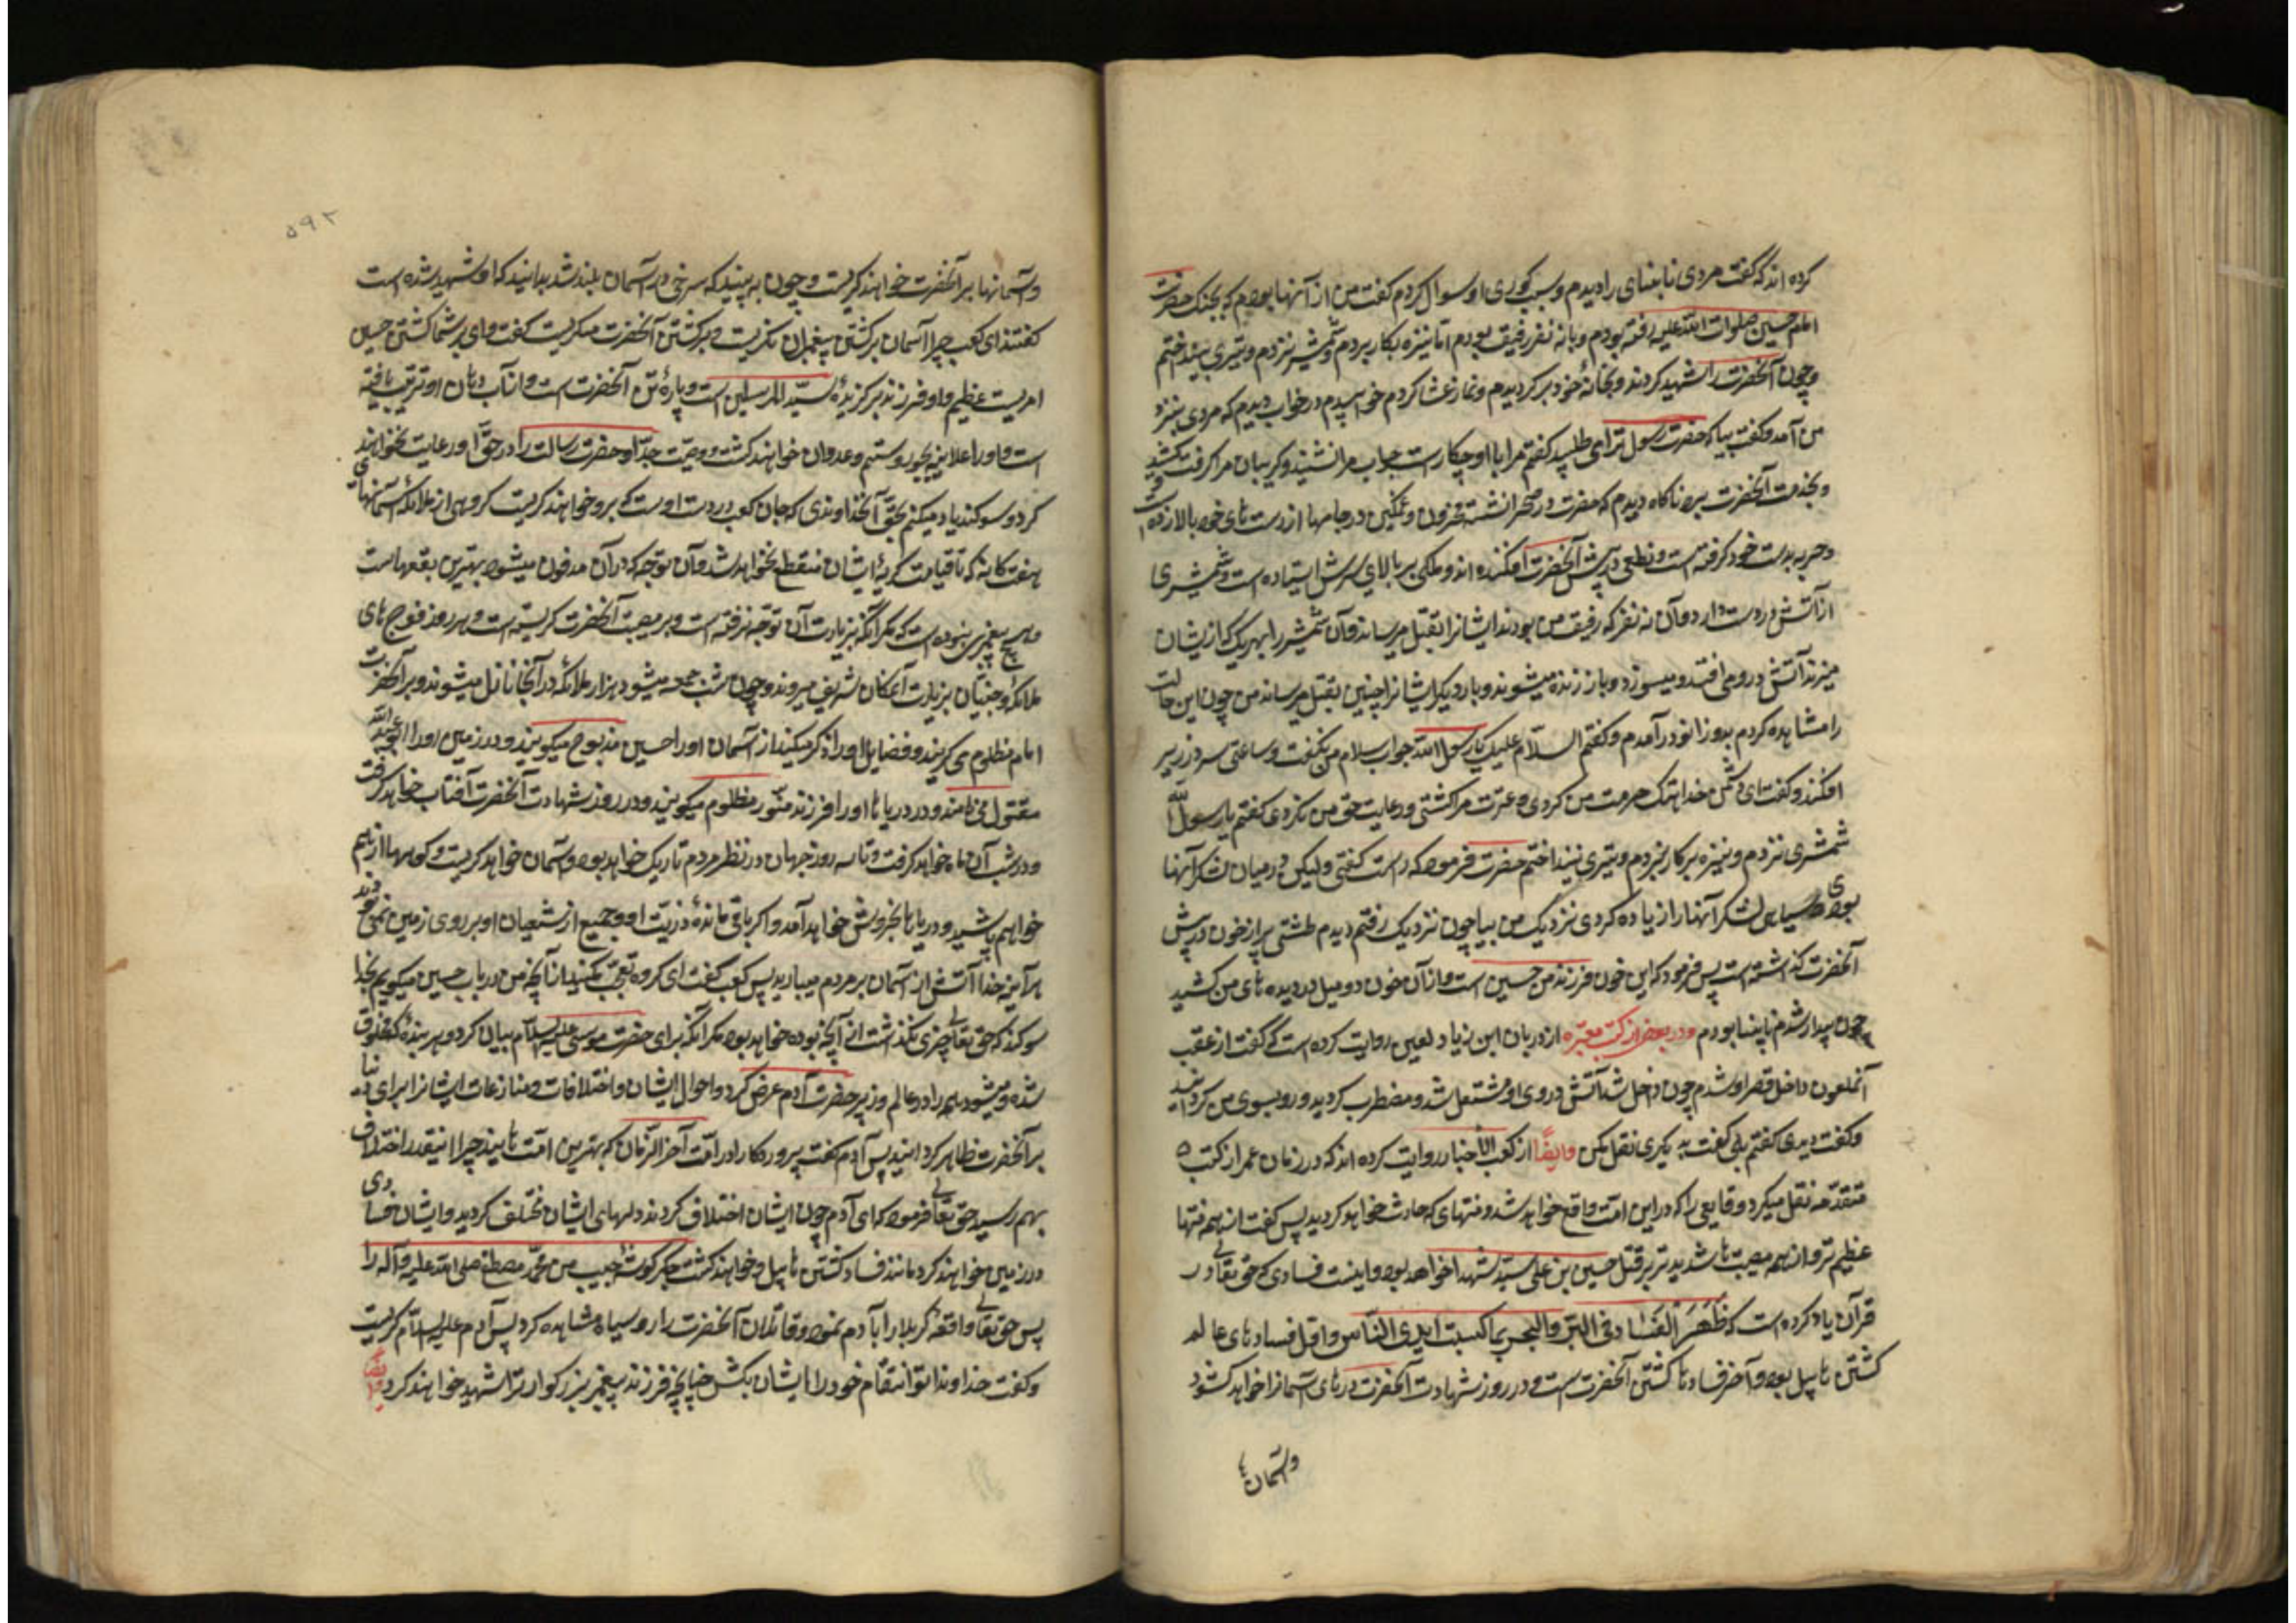 کرده اند که گفت مردی نابینای را دیدم و سبب کوری او سوال کردم گفت من از آنها بودم که بجنک حضرت
امام حسین صلوات الله علیه رفته بودم و با نه نفر رفیق بودم اما نیزه بکار نبردم و شمشیر نزدم و تیری نینداختم
و چون آنحضرت را شهید کردند و بخانهٔ خود برگردیدم و نماز عشا کردم خوابیدم در خواب دیدم که مردی بنزد
من آمد و گفت بیا که حضرت رسول ترا می طلبد گفتم مرا با او چکار است جواب مرا نشنید و گریبان مرا گرفت و کشید
و بخدمت آنحضرت برد ناگاه دیدم که حضرت در صحرا نشسته محزون و غمگین و جامها از دست های خود بالا زده است
و حربه بدست خود گرفته است و نطعی در پیش آنحضرت افکنده اند و ملکی بر بالای سرش ایستاده است و شمشیری
از آتش در دست دارد و آن نه نفر که رفیق من بودند ایشانرا بقتل میرساند و آن شمشیر را بهر یک که از ایشان
میزند آتش در او می افتد و میسوزد و باز زنده میشوند و بار دیگر ایشانرا چنین بقتل میرساند من چون این حالت
را مشاهده کردم بدو زانو در آمدم و گفتم السلام علیک یا رسول الله جواب سلام من نگفت و ساعتی سر در زیر
افکند و گفت ای دشمن خدا هتک حرمت من کردی و عترت مرا کشتی و رعایت حق من نکردی گفتم یا رسول الله
شمشیری نزدم و نیزه بکار نبردم و تیری نینداختم حضرت فرمود که راست گفتی و لیکن در میان لشکر آنها
بودی و سیاهی لشکر آنها را زیاده کردی نزدیک من بیا چون نزدیک رفتم دیدم طشتی پر از خون در پیش
آنحضرت گذاشته است پس فرمود که این خون فرزند من حسین است و از آن خون دو میل در دیده های من کشید
چون بیدار شدم نابینا بودم و در بعضی از کتب معتبره از دربان ابن زیاد لعین روایت کرده است که گفت از عقب
آنملعون داخل قصر او شدم چون داخل شد آتش در روی او مشتعل شد و مضطرب گردید و رو بسوی من گردانید
و گفت دیدی گفتم بلی گفت بدیگری نقل مکن و ایضاً از کعب الأخبار روایت کرده اند که در زمان عمر از کتب
متقدمه نقل میکرد وقایعی را که در این امت واقع خواهد شد و فتنهای که حادث خواهد گردید پس گفت از همه فتنها
عظیم تر و از همه مصیبت ها شدیدتر قتل حسین بن علی سید شهدا خواهد بود و اینست فسادی که حق تعالی در
قرآن یاد کرده است که ظَهَرَ الفَسٰاد فی البَرّ و البحر بما کسبت أیدی النّاس و اول فساد های عالم
کشتن هابیل بود و آخر فساد ها کشتن آنحضرت است و در روز شهادت آنحضرت درهای آسمانرا خواهد گشود
و آسمان
۵۹۲
و آسمانها بر آنحضرت خواهند گریست و چون به بینید که سرخی در آسمان بلند شد بدانید که او شهید شده است
گفتند ای کعب چرا آسمان بر کشتن پیغمبران نگریست و بر کشتن آنحضرت میگریست گفت وای بر شما کشتن حسین
امریست عظیم و او فرزند برگزیدهٔ سیّد المرسلین است و پارهٔ تن آنحضرت است و از آب دهان او تربیت یافته
است و او را علانیه بجور و ستم و عدوان خواهند کشت و وصیّت جدّ او حضرت رسالت را در حقّ او رعایت نخواهند
کرد و سوکند یاد میکنم بحقّ آنخداوندی که جان کعب در دست اوست که برو خواهند گریست گروهی از ملائکهٔ آسمانهای
هفتگانه که تا قیامت گریهٔ ایشان منقطع نخواهد شد و آن بقعه که در آن مدفون میشود بهترین بقعهاست
و هیچ پیغمبری نبوده است که مگر آنکه بزیارت آن بقعه رفته است و بر مصیبت آنحضرت گریسته است و هر روز فوج های
ملائکه و جنّیان بزیارت آنمکان شریف میروند و چون شب جمعه میشود هزار ملائکه در آنجا نازل میشوند و بر آنحضرت
امام مظلوم می گریند و فضایل او را ذکر میکنند از آسمان او را حسین مذبوح میگویند و در زمین او را ابو عبد الله
مقتول می نامند و در دریاها او را فرزند منوّر مظلوم میگویند و در روز شهادت آنحضرت آفتاب خواهد گرفت
و در شب آن ماه خواهد گرفت و تا سه روز جهان در نظر مردم تاریک خواهد بود و آسمان خواهد گریست و کوهها از هم
خواهد پاشید و دریاها بخروش خواهد آمد و اگر باقی ماندهٔ ذرّیت او و جمیع از شیعیان او بر روی زمین نمی بودند
هر آینه خدا آتش از آسمان بر مردم میبارید پس کعب گفت ای گروه تعجّب مکنید از آنچه من در باب حسین میگویم بخدا
سوکند که حق تعالی چیزی نگذاشت از آنچه بوده و خواهد بود مگر آنکه برای حضرت موسی علیه السلام بیان کرد و هر بندهٔ که مخلوق
شده و میشود همه را در عالم وزیر حضرت آدم عرض کرد و احوال ایشان و اختلافات و منازعات ایشانرا برای دنیا
بر آنحضرت ظاهر گردانید پس آدم گفت پروردگارا در امّت آخر الزمان که بهترین امّت هایند چرا اینقدر اختلاف
بهم رسید حق تعالی فرمود که ای آدم چون ایشان اختلاف کردند دلهای ایشان مختلف گردید و ایشان فسادی
در زمین خواهند کرد مانند فساد کشتن هابیل و خواهند کشت جگر گوشهٔ حبیب من محمّد مصطفی صلی الله علیه و آله را
پس حق تعالی واقعهٔ کربلا را بآدم نمود و قاتلان آنحضرت را رو سیاه مشاهده کرد پس آدم علیه السلام گریست
و گفت خداوندا تو انتقام خود را از ایشان بکش چنانچه فرزند پیغمبر بزرگوار ترا شهید خواهند کرد و ایضاً